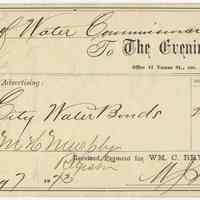 of Water Commissioner
To The Evenin
Office 41 Nassau St., cor.
Advertising:
City Water Bonds
Wm H Murphy
Register
Received Payment for WM. C. BRY
7 1873